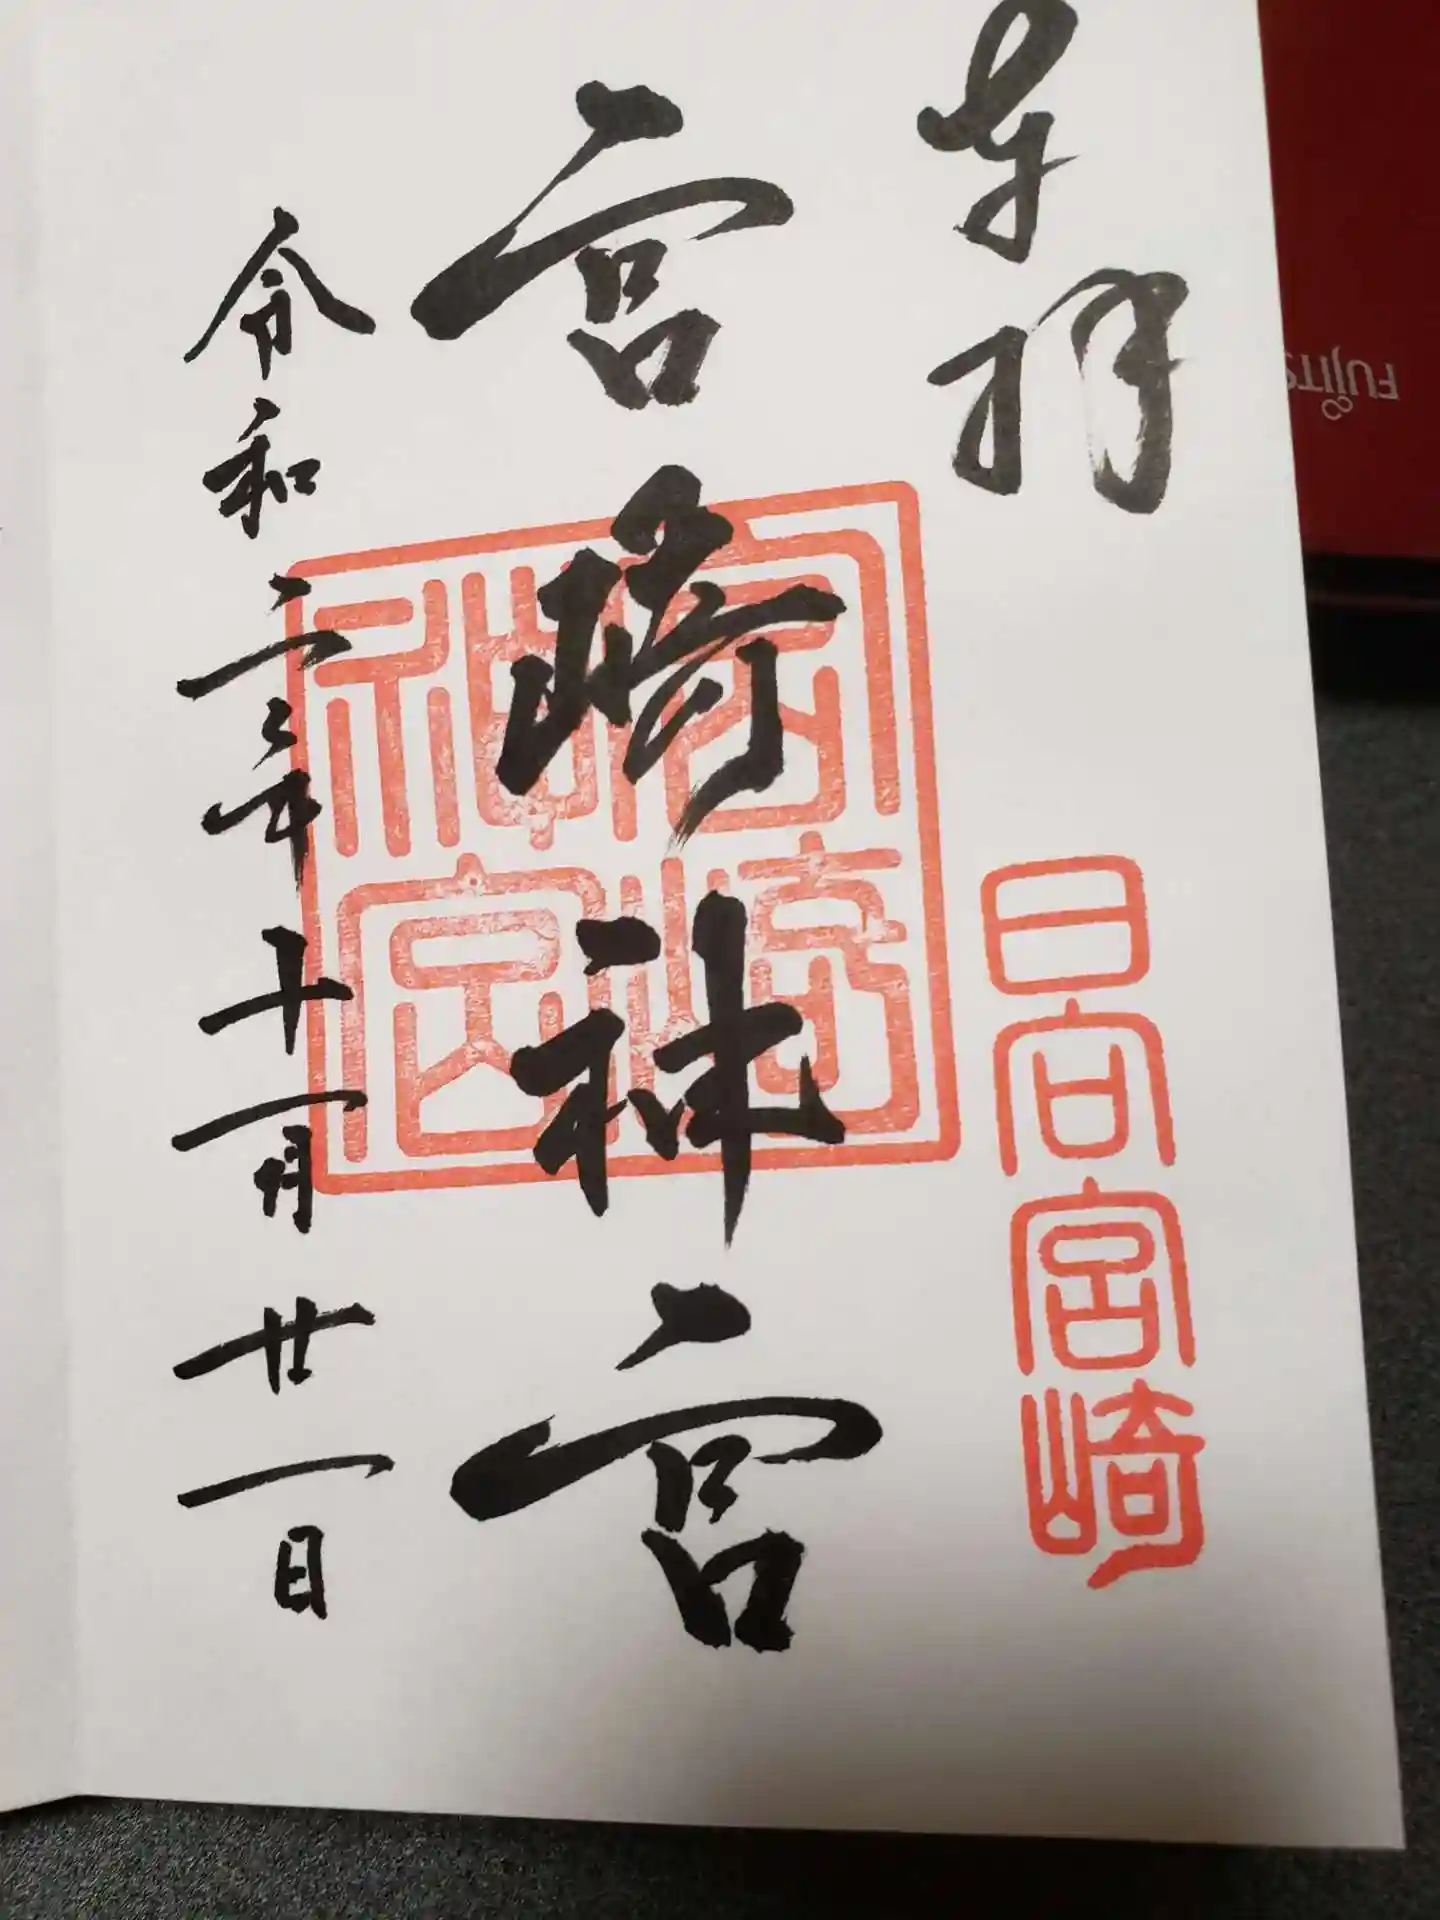 奉拝
日向宮崎
宮崎神宮
宮崎神宮
令和二年十一月廿一日
FUJITS